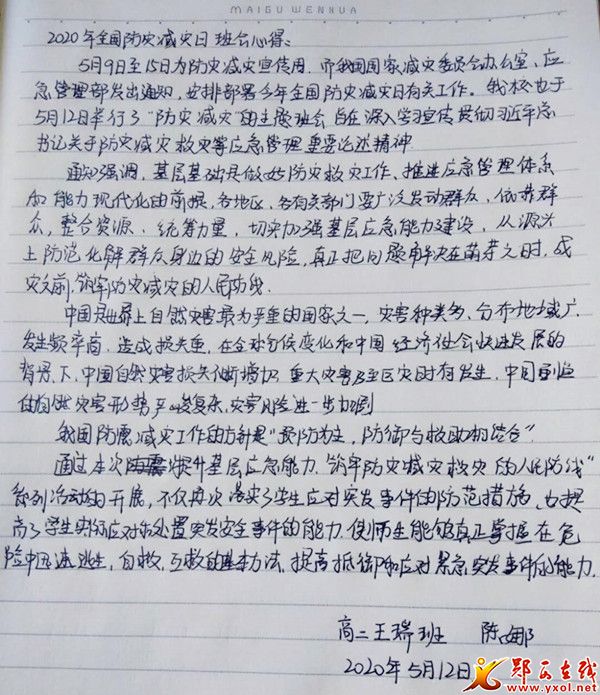 MAIGU WENHUA
2020年全国防灾减灾日班会心得:
5月9日至15日为防灾减灾宣传周.
国家减灾委员会办公室、应
急管理部发出通知,安排部署今年全国防灾减灾日有关工作。我校也于
5月12日举行了"防灾减灾"的主题班会旨在深入学习宣传贯彻习近平总
书记关于防灾减灾救灾等应急管理重要论述精神
通知强调,基层基础是做好防灾救灾工作、推进应急管理体系
和能力现代化的前提,各地区、各有关部门要广泛发动群众,依靠群
众,整合资源、统筹力量,切实加强基层应急能力建设,从源头
上防范化解群众身边的安全风险,真正把问题解决在萌芽之时、成
灾之前,筑牢防灾减灾的人民防线.
中国是世界上自然灾害最为严重的国家之一,灾害种类多、分布地域广、
发生频率高、造成损失重,在全球气候变化和中国经济社会快速发展的
背景下,中国自然灾害损失不断增加,重大灾害 时有发生,中国面临
的自然灾害形势严峻复杂,灾害风险进一步加剧
我国防震减灾工作的方针是"预防为主,防御与救助相结合"
通过本次 提升基层应急能力,筑牢防灾减灾救灾的人民防线"
系列活动的开展,不仅再次落实了学生应对突发事件的防范措施、也提
高了学生实际应对和处置突发安全事件的能力.使师生能够真正掌握在危
险中迅速逃生、自救、互救的基本方法,提高抵御和应对紧急突发事件的能力.
高二王瑞班 陈娜
2020年5月12日
郑在线
www.yxol.net